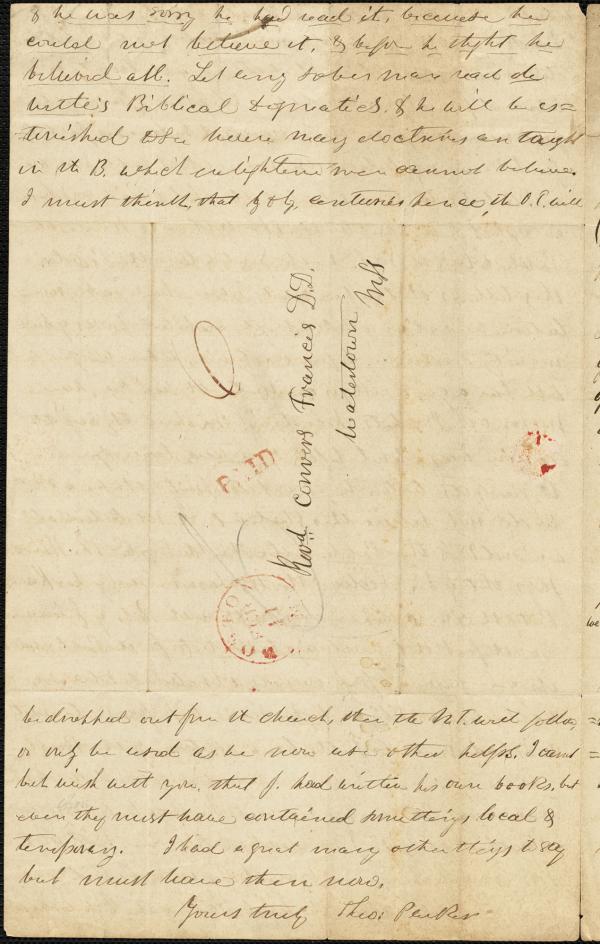 & he was sorry he had read it, because he
could not believe it, & before he thght he
believed all. Let any sober man read de
Wette's Biblical Dogmatics, & he will be as=
tonished to see how many doctrines are taught
in the B. which enlightened men cannot believe.
I must think, that by & by, centuries hence, the O.T. will
Revd. Convers Francis D.D.
Watertown
Mss
6
PAID
BOSTON
be dropped out from the church, then the N.T. will follow,
or only be used as we now use other helps. I cannot
but wish with you, that J. had written his own books, but
even they must have contained somethings local &
temporary. I had a great many other things to say
but must leave them now.
Yours truly Theo: Parker